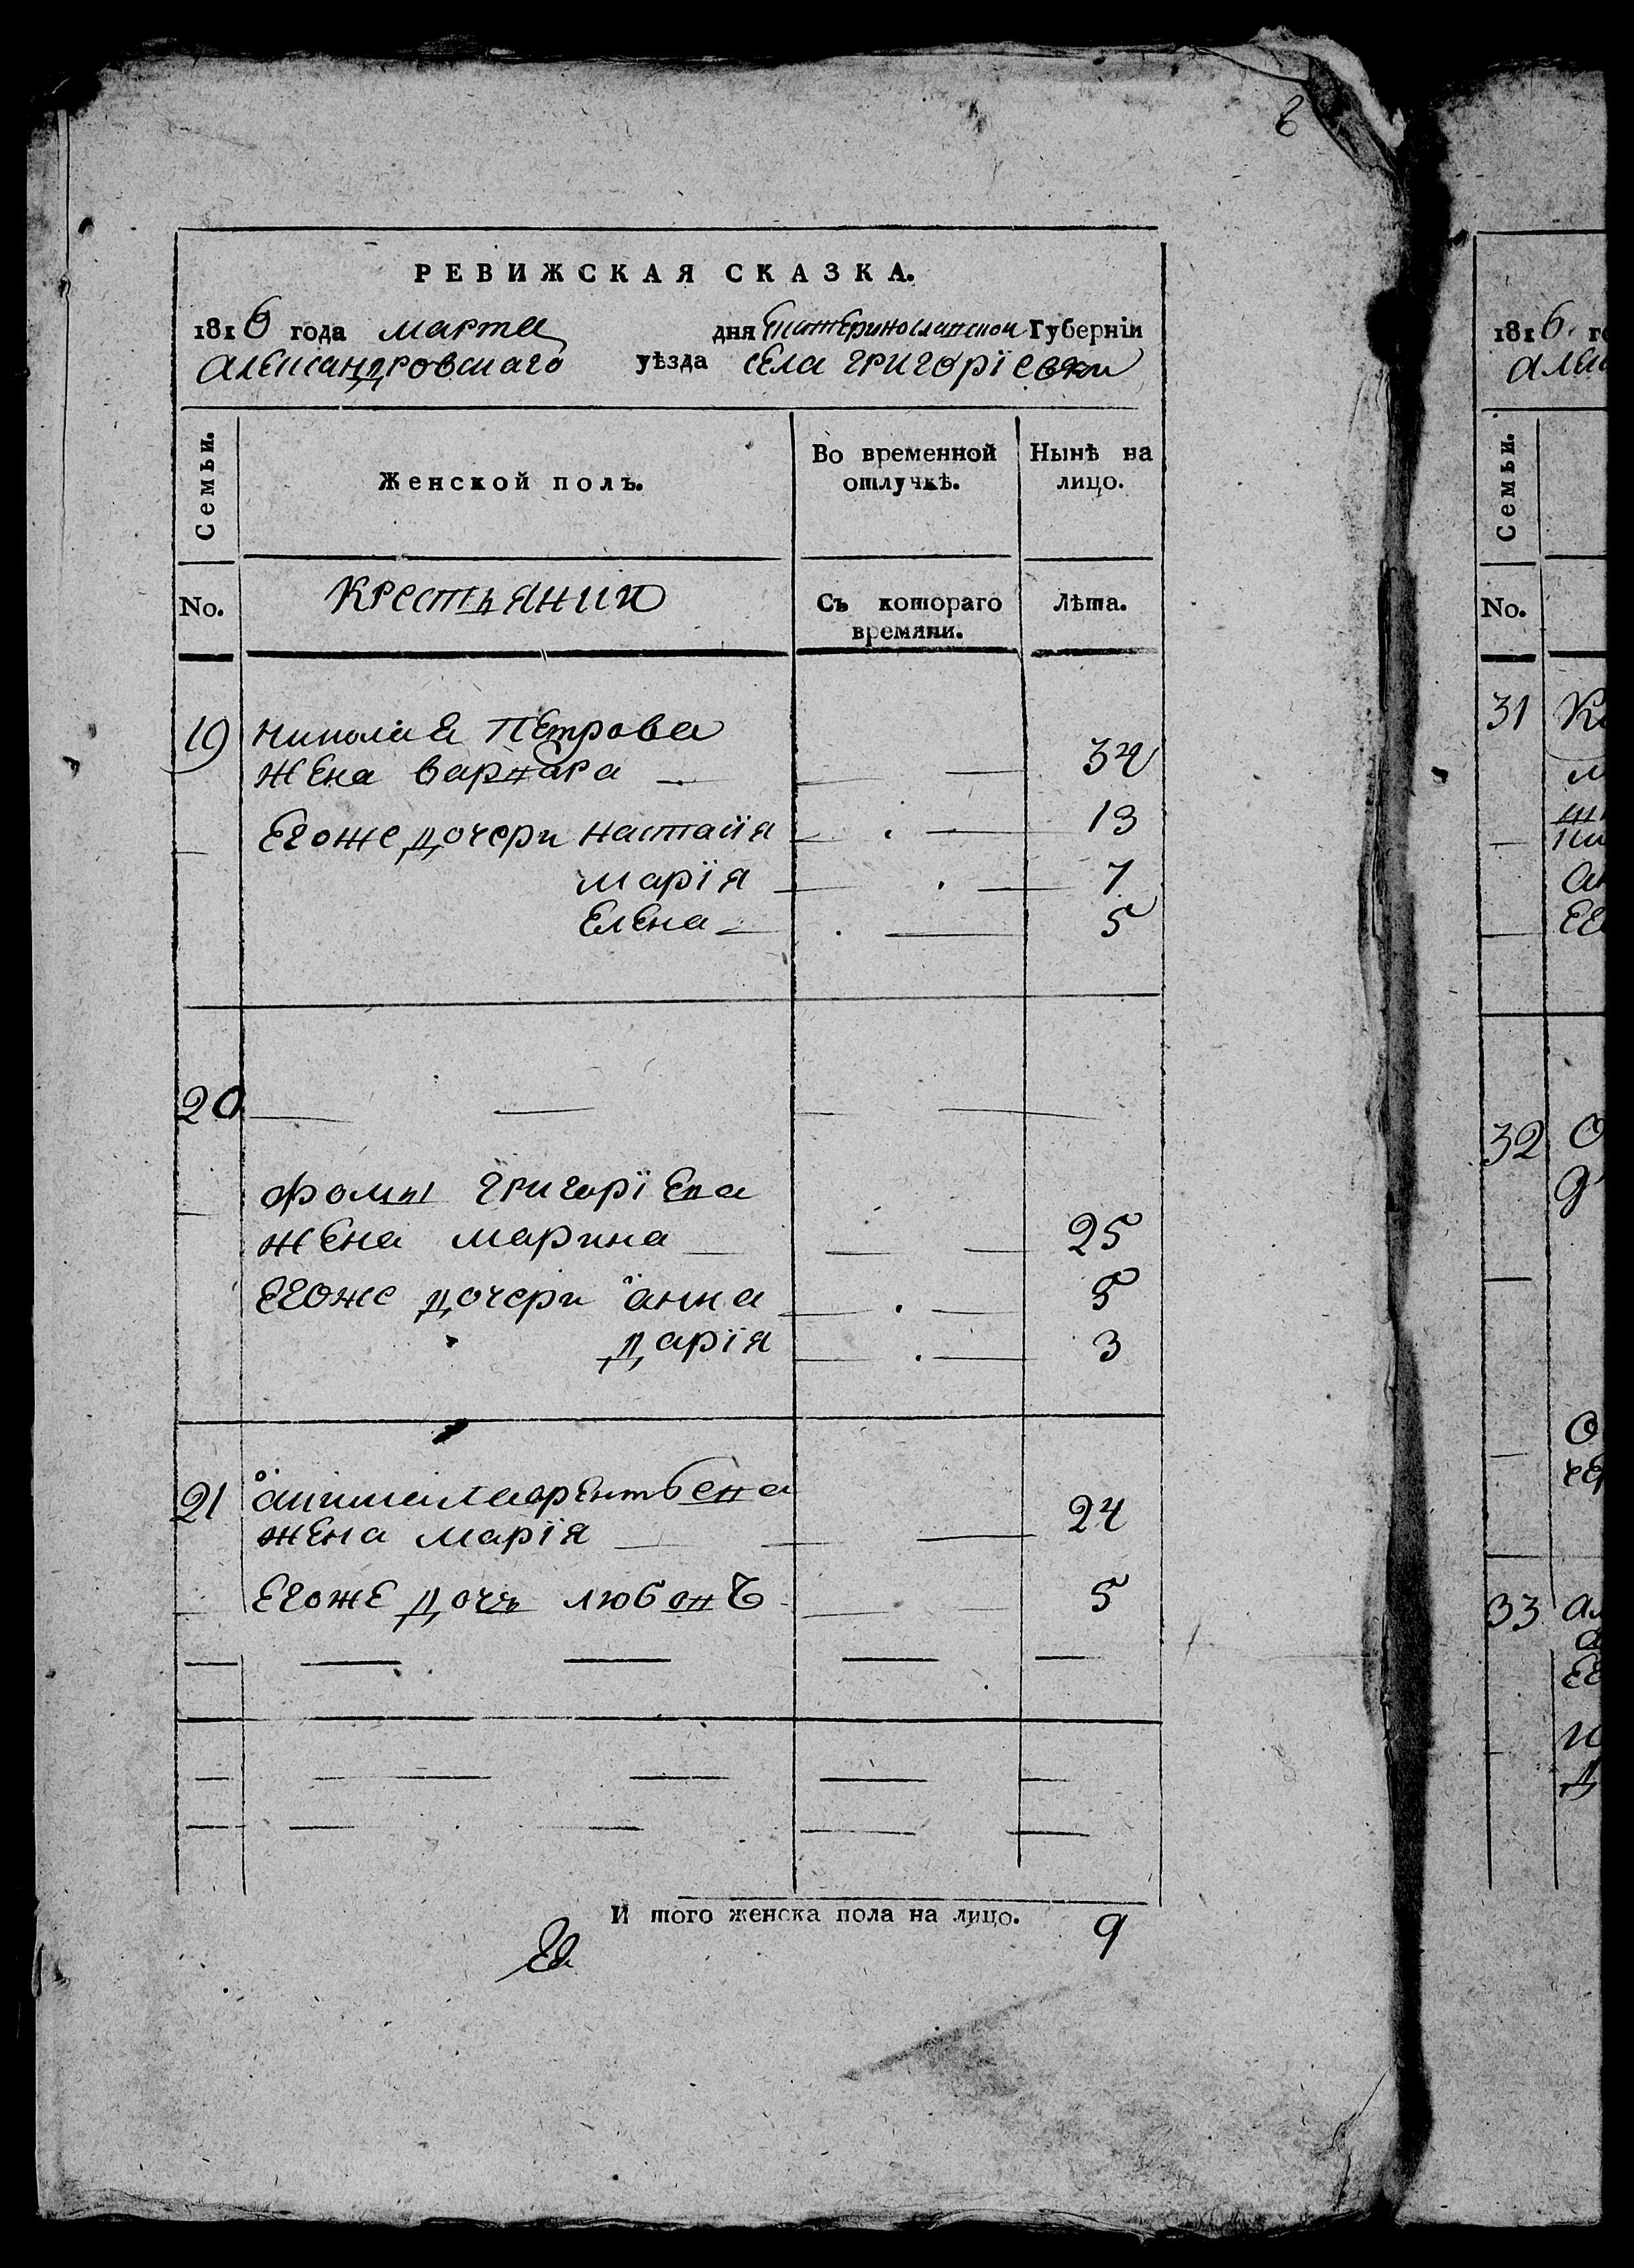 8
РЕВИЖСКАЯ СКАЗКА.
1816 года марта дня Екатеринославской Губернїи
Александровскаго уѣзда села Григорїевки
Семьи. Женской полъ. Во временной отлучкѣ. Нынѣ на лицо.
No. Крестьянки Съ котораго времяни. Лѣта.
19 Николая Петрова
жена варвара 34
Егоже дочери настасїя 13
марїя 7
Елена 5
20
фомы григорїева
жена марина 25
Егоже дочери анна 5
дарїя 3
21 лаврентьева
жена марїя 24
Егоже дочь любовь 5
И того женска пола на лицо. 9
1816 го
Семьи.
No.
31
32
33